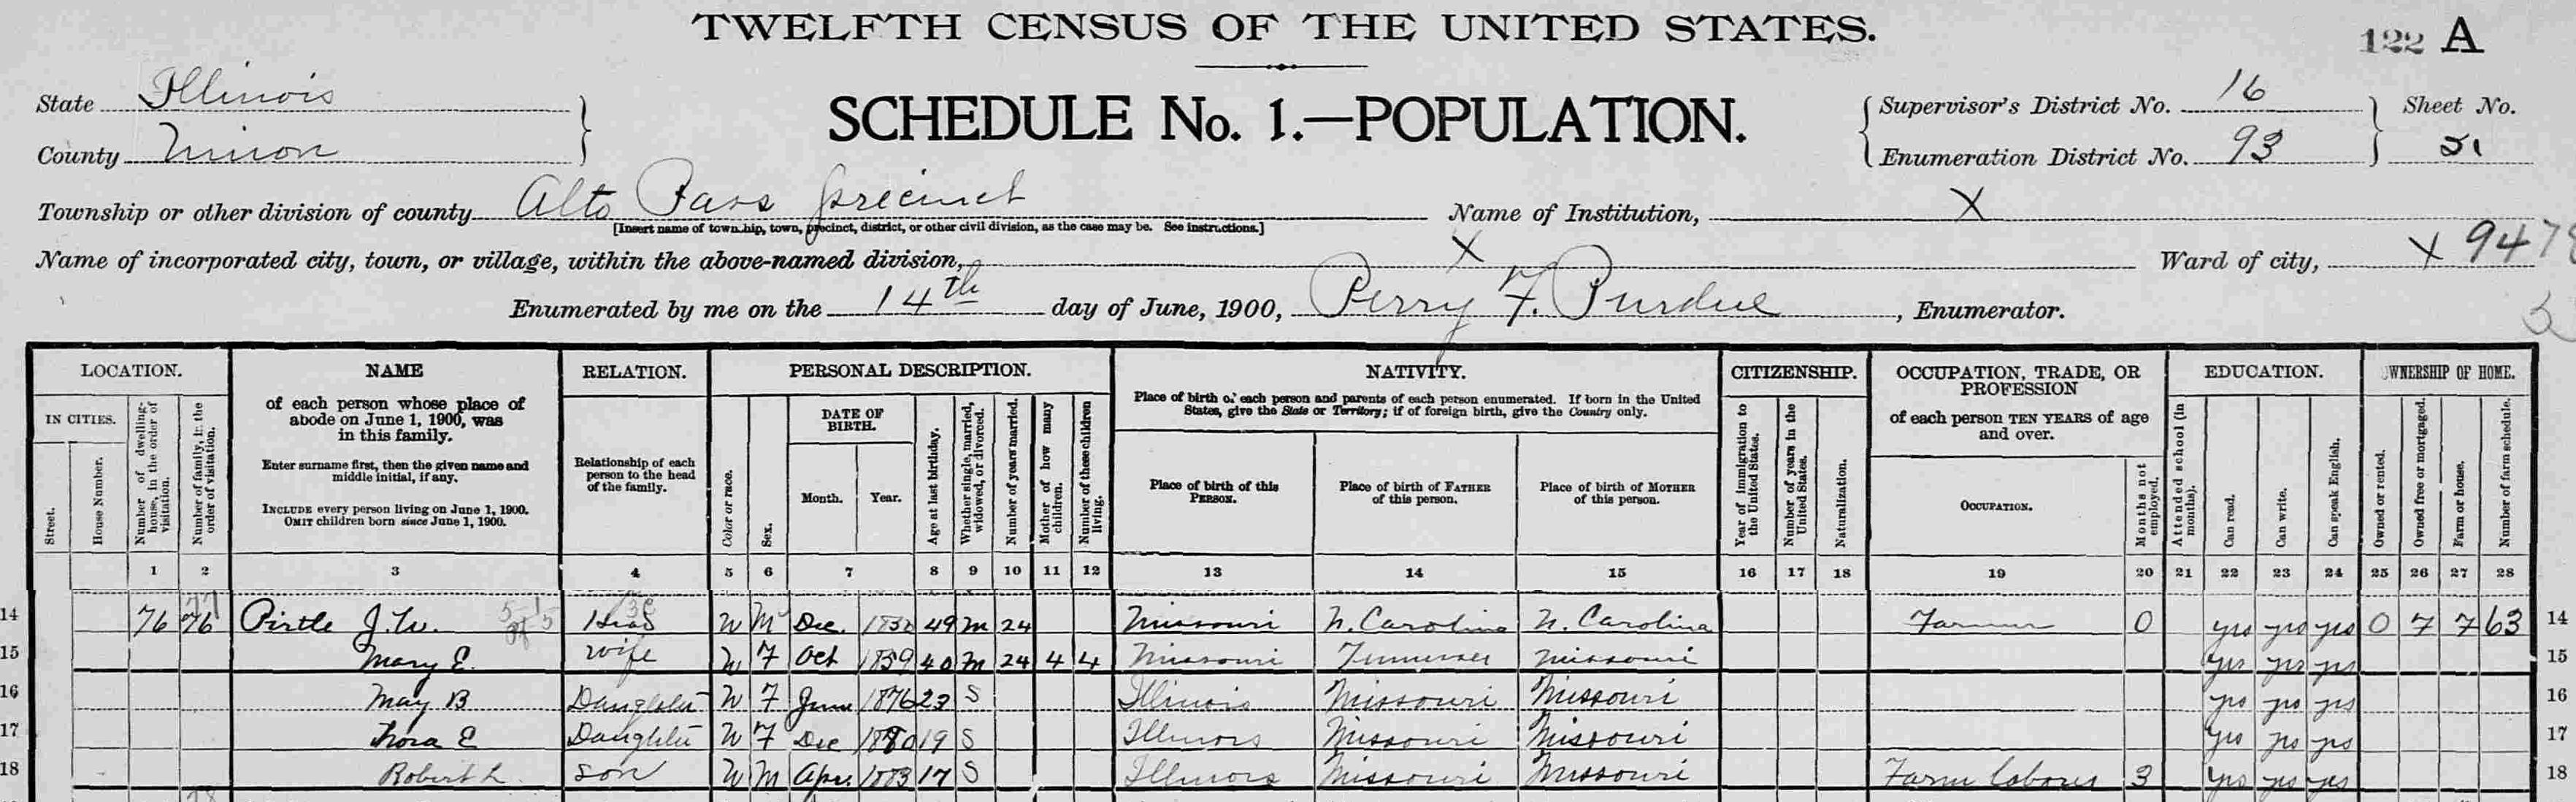 TWELFTH CENSUS OF THE UNITED STATES.
122 A
State Illinois
County Union
SCHEDULE No. 1.—POPULATION.
Supervisor's District No. 16
Enumeration District No. 93
Sheet No.
Township or other division of county Alto Pass precinct
[Insert name of township, town, precinct, district, or other civil division, as the case may be. See instructions.]
Name of Institution, X
Name of incorporated city, town, or village, within the above-named division, X
Ward of city, X 9478
Enumerated by me on the 14th day of June, 1900, Perry F. Purdue, Enumerator.
LOCATION.
IN CITIES.
Street.
House Number.
Number of dwelling-house, in the order of visitation.
Number of family, in the order of visitation.
NAME
of each person whose place of abode on June 1, 1900, was in this family.
Enter surname first, then the given name and middle initial, if any.
INCLUDE every person living on June 1, 1900.
OMIT children born since June 1, 1900.
RELATION.
Relationship of each person to the head of the family.
PERSONAL DESCRIPTION.
Color or race.
Sex.
DATE OF BIRTH.
Month.
Year.
Age at last birthday.
Whether single, married, widowed, or divorced.
Number of years married.
Mother of how many children.
Number of these children living.
NATIVITY.
Place of birth of each person and parents of each person enumerated. If born in the United States, give the State or Territory; if of foreign birth, give the Country only.
Place of birth of this PERSON.
Place of birth of FATHER of this person.
Place of birth of MOTHER of this person.
CITIZENSHIP.
Year of immigration to the United States.
Number of years in the United States.
Naturalization.
OCCUPATION, TRADE, OR PROFESSION
of each person TEN YEARS of age and over.
OCCUPATION.
Months not employed.
EDUCATION.
Attended school (in months).
Can read.
Can write.
Can speak English.
OWNERSHIP OF HOME.
Owned or rented.
Owned free or mortgaged.
Farm or house.
Number of farm schedule.
1 2 3 4 5 6 7 8 9 10 11 12 13 14 15 16 17 18 19 20 21 22 23 24 25 26 27 28
14 76 76 Pirtle J. W. Head W M Dec. 49 M 24 Missouri N. Carolina N. Carolina Farmer 0 yes yes yes O F F 63 14
15 Mary E. wife W F Oct 1859 40 M 24 4 4 Missouri Tennessee Missouri yes yes yes 15
16 May B Daughter W F June 1876 23 S Illinois Missouri Missouri yes yes yes 16
17 Nora E Daughter W F Dec 1880 19 S Illinois Missouri Missouri yes yes yes 17
18 Robert L. son W M Apr. 1883 17 S Illinois Missouri Missouri Farm laborer 3 yes yes yes 18